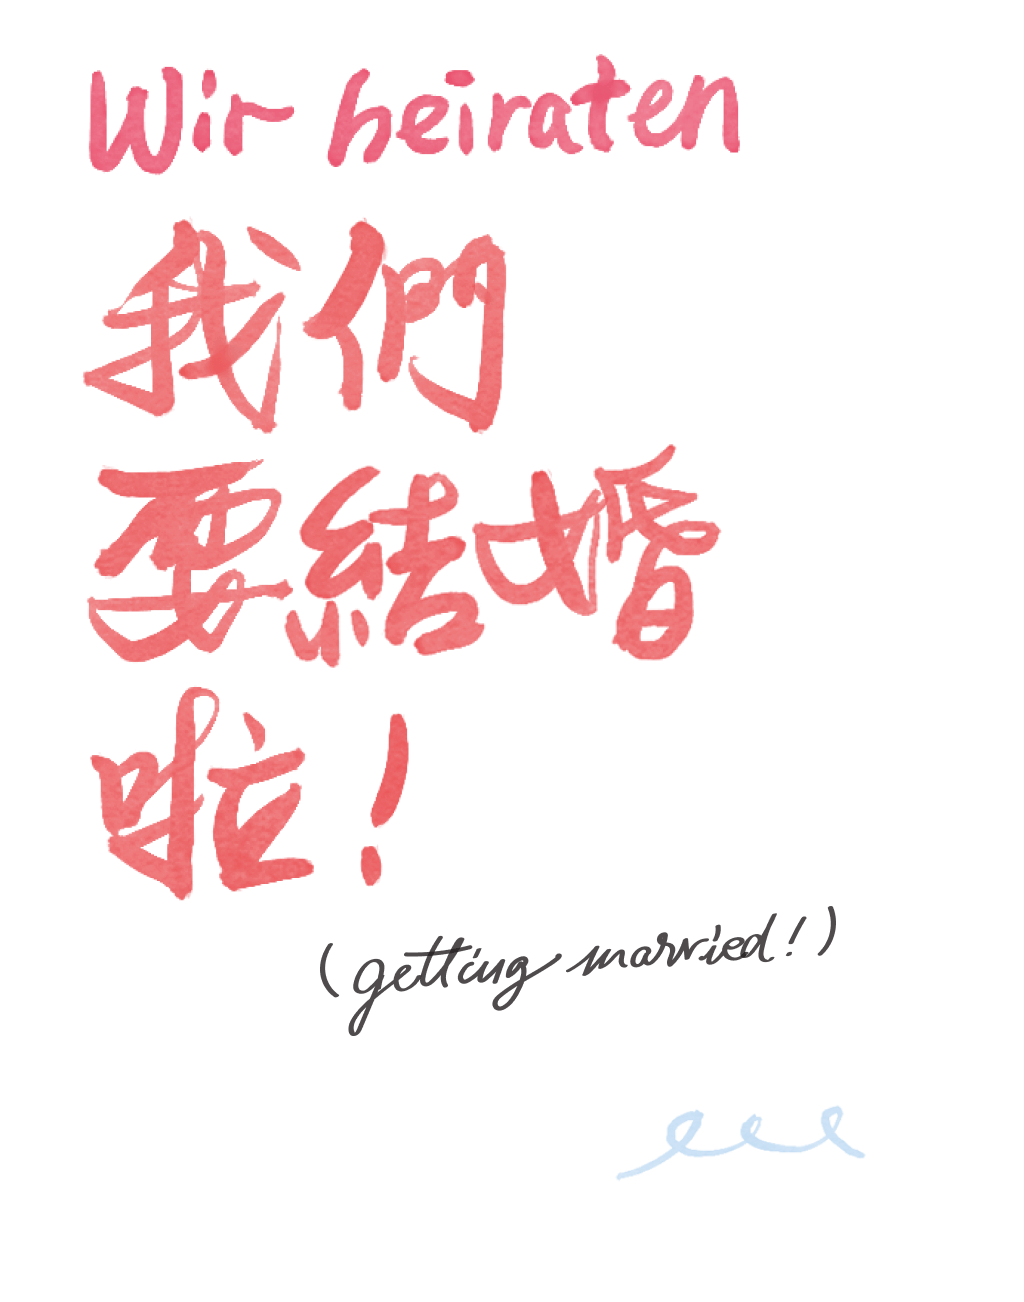 Wir heiraten
我們
要結婚
啦！
(getting married!)